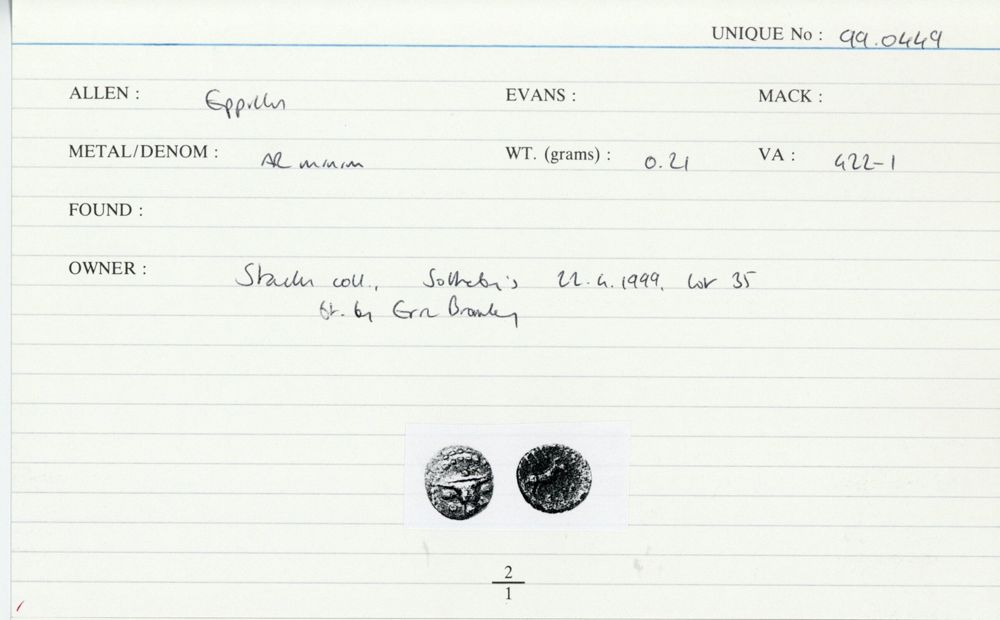 UNIQUE No : 99.0449
ALLEN : Eppillus EVANS : MACK :
METAL/DENOM : AR minim WT. (grams) : 0.21 VA : 422-1
FOUND :
OWNER : coll., Sotheby's 22.4.1999, lot 35
bt. by
2
1